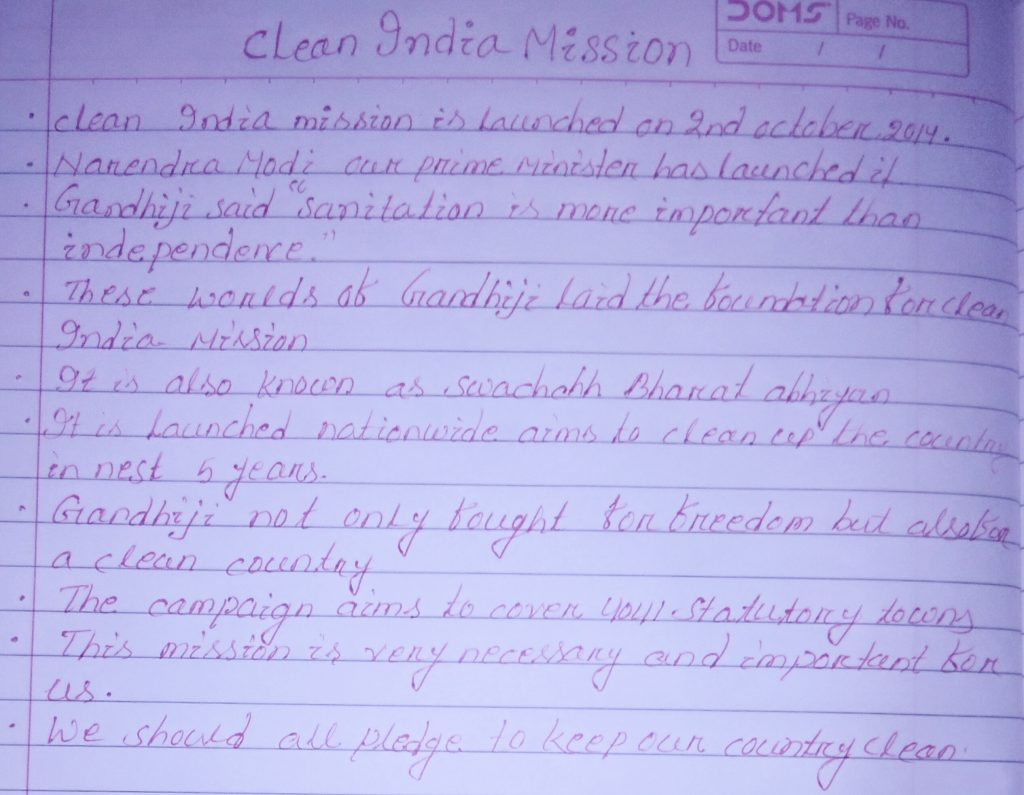 DOMS Page No.
Date / /
Clean India Mission
• clean India mission is launched on 2nd october 2014.
• Narendra Modi our prime Minister has launched it
• Gandhiji said "sanitation is more important than
independence."
• These worlds of Gandhiji laid the foundation for clean
India Mission
• It is also known as swachahh Bharat abhiyan
• It is launched nationwide aims to clean up the country
in nest 5 years.
• Gandhiji not only fought for freedom but also for
a clean country
• The campaign aims to cover 4041 statutory towns
• This mission is very necessary and important for
us.
• We should all pledge to keep our country clean.